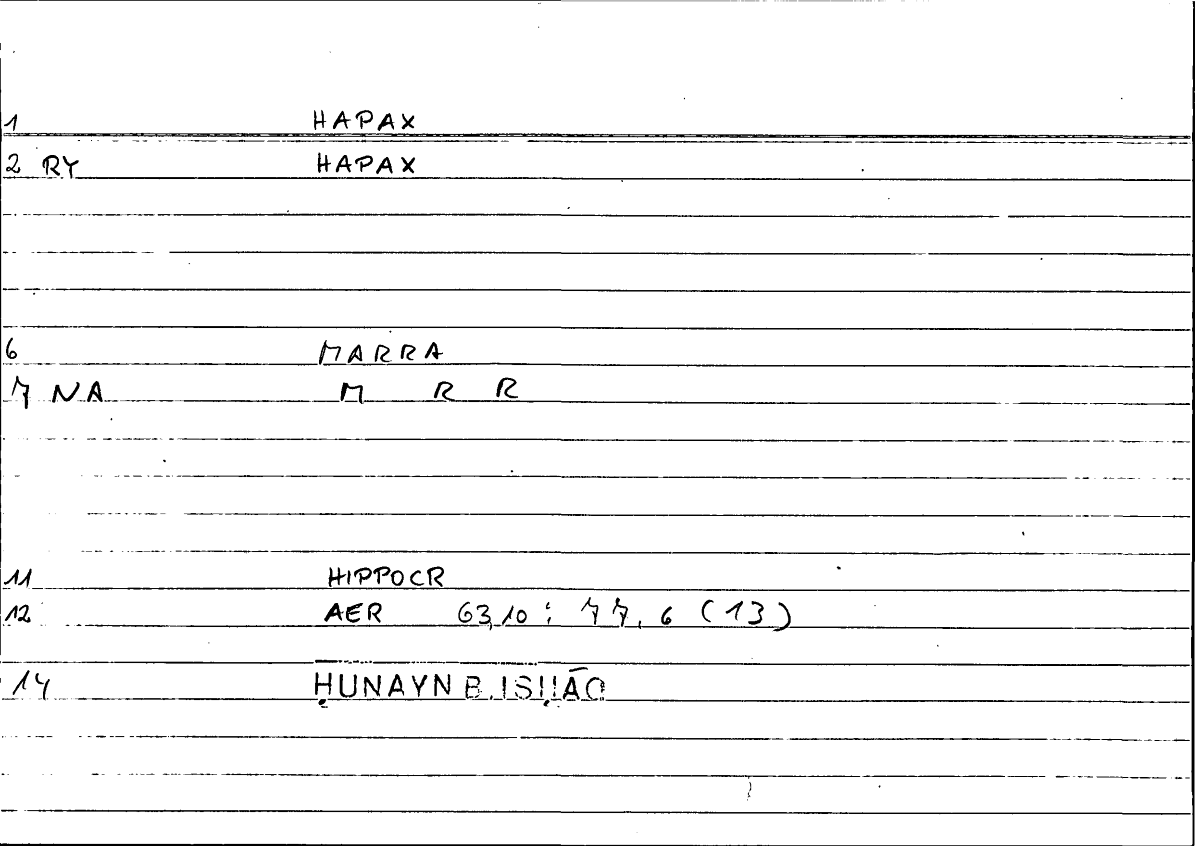 1 HAPAX
2 RY HAPAX
6 MARRA
7 NA M R R
11 HIPPOCR
12 AER 63,10 : 77, 6 (13)
14 ḤUNAYN B. ISḤĀQ